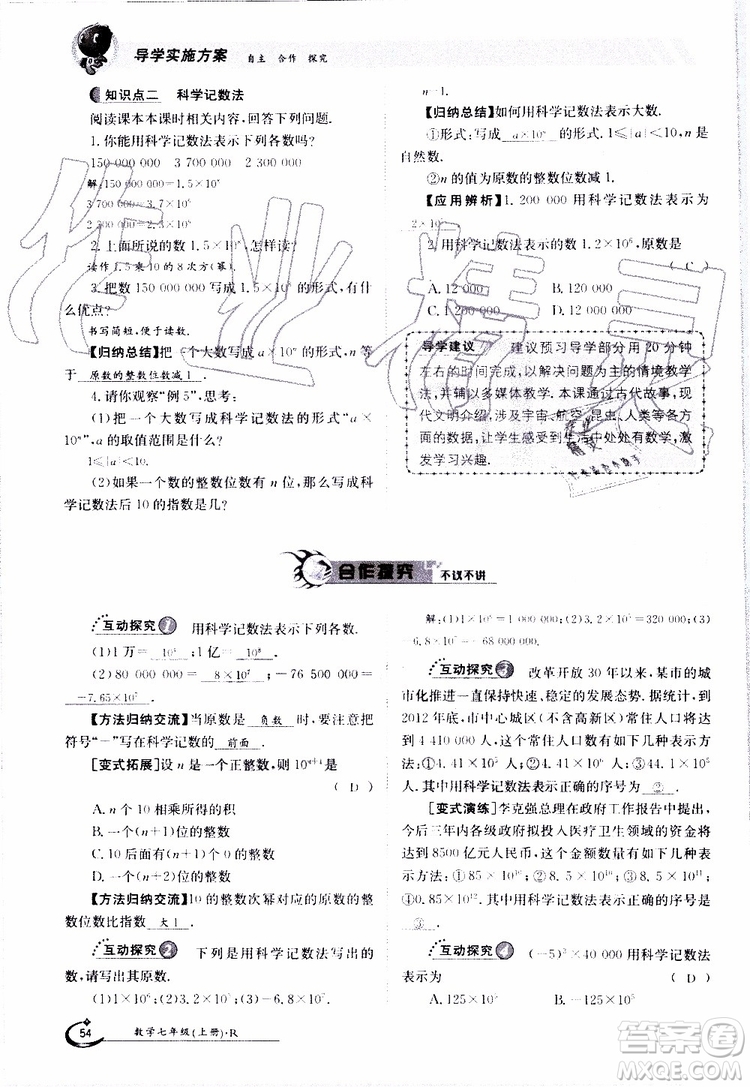 导学实施方案 自主 合作 探究
知识点二 科学记数法
阅读课本本课时相关内容,回答下列问题.
1. 你能用科学记数法表示下列各数吗?
150 000 000 3 700 000 2 300 000
解:150 000 000=1.5×10⁸
2 300 000=
2. 上面所说的数 1.5×10⁸,怎样读?
读作1.5乘10的8次方(幂).
3. 把数 150 000 000 写成 1.5×10⁸ 的形式,有什
么优点?
书写简短,便于读数.
【归纳总结】 把一个大数写成 a×10ⁿ 的形式,其中 n 等
于 原数的整数位数减1 .
4. 请你观察“例 5”,思考:
(1)把一个大数写成科学记数法的形式“a×
10ⁿ”,a 的取值范围是什么?
1≤|a|<10.
(2)如果一个数的整数位数有 n 位,那么写成科
学记数法后 10 的指数是几?
n-1.
【归纳总结】如何用科学记数法表示大数.
①形式:写成 a×10ⁿ 的形式,1≤|a|<10,n 是
自然数.
②n 的值是原数的整数位数减 1.
【应用辨析】1. 200 000 用科学记数法表示为
2×10
2. 用科学记数法表示的数 1.2×10⁶,原数是
( C )
A. 12 000 B. 120 000
C. 1 200 000 D. 12 000 000
导学建议 建议预习导学部分用 20 分钟
左右的时间完成,以解决问题为主的情境教学
法,并辅以多媒体教学.本课通过古代故事,现
代文明介绍,涉及宇宙、航空、昆虫、人类等各方
面的数据,让学生感受到生活中处处有数学,
激发学习兴趣.
合作探究 不议不讲
互动探究 1 用科学记数法表示下列各数.
(1)1万= 10⁴ ;1亿= 10⁸ .
(2)80 000 000= 8×10⁷ ,-76 500 000=
-7.65×10⁷ .
【方法归纳交流】当原数是 负数 时,要注意把
符号“-”写在科学记数的 前面 .
[变式拓展]设 n 是一个正整数,则 10ⁿ⁺¹ 是
( D )
A. n 个 10 相乘所得的积
B. 一个(n+1)位的整数
C. 10 后面有(n+1)个 0 的整数
D. 一个(n+2)位的整数
【方法归纳交流】10 的整数次幂对应的原数的整
数位数比指数 大1 .
互动探究 2 下列是用科学记数法写出的
数,请写出其原数.
(1)1×10⁶ (2)3.2×10⁵ (3)-6.8×10⁷
解:(1)1×10⁶=1 000 000;(2)3.2×10⁵=320 000;(3)
-6.8×10⁷=-68 000 000.
互动探究 3 改革开放 30 年以来,某市的城
市化推进一直保持快速、稳定的发展态势.据统计,到
2012 年底,市中心城区(不含高新区)常住人口将达到
4 410 000 人,这个常住人口数有如下几种表示:
①4.41×10⁵ 人;②4.41×10⁶ 人;③44.1×10⁵
人.其中用科学记数法表示正确的序号为 ② .
[变式演练]李克强总理在政府工作报告中提出,
今后三年内各级政府拟投入医疗卫生领域的资金将
达到 8500 亿元人民币,这个金额数量有如下几种
表示方法:①85×10¹⁰,②8.5×10¹⁰,③8.5×10¹¹,
④0.85×10¹².其中用科学记数法表示正确的序号为
③ .
互动探究 4 (-5)³×40 000 用科学记数法
表示为 ( D )
A. 125×10⁵ B. -125×10⁵
54 数学七年级(上册)·R